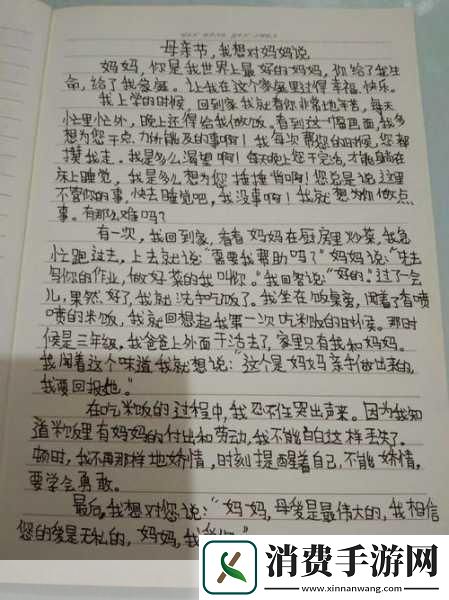 母亲节，我想对妈妈说
妈妈，你是我世界上最好的妈妈，你给了我生
命，给了我家庭。让我在这个家庭里过得幸福、快乐。
我上学的时候，回到家我就看你非常地辛苦，每天
忙里忙外，晚上还得给我做饭。看到这一幅画面，我多
想为您干点力所能及的事啊！我每次帮您的时候，您都
撵我走。我是多么渴望啊！每天晚上您干完活，才能躺在
床上睡觉，我是多么想为您捶捶背啊！您总是说这里
不管你的事，快去睡觉吧，我没事啊！我就想为你做点
事。有那么难吗？
有一次，我回到家，看着妈妈在厨房里炒菜，我急
忙跑过去，上去就说：“需要我帮助吗？”妈妈说：“先去
写你的作业，做好菜的我叫你。”我回答说：“好的。”过了一会
儿，果然好了，我就洗手吃饭了。我坐在饭桌旁，闻着香喷
喷的米饭，我就回想起我第一次吃米饭的时候。那时
候是三年级。我爸爸上外面干活去了，家里只有我和妈妈。
我闻着这个味道我就想说：“这个是妈妈亲手做出来的，
我要回报她。”
在吃米饭的过程中，我忍不住哭出声来。因为我知
道米饭里有妈妈的付出和劳动，我不能白白这样丢失了。
顿时，我不再那样地娇情，时刻提醒着自己，不能娇情，
要学会勇敢。
最后，我想对您说：“妈妈，母爱是最伟大的，我相信
您的爱是无私的，妈妈，我
消费手游网
www.xinnanwang.com